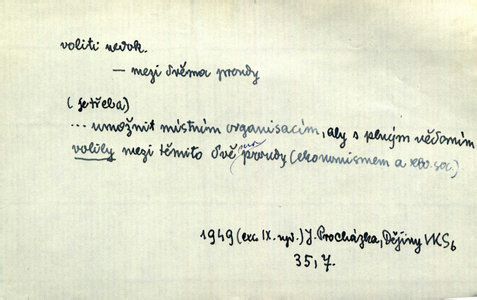 voliti nedok.
— mezi dvěma proudy
(je třeba)
... umožnit místním organisacím, aby s plným vědomím
volily mezi těmito dvěma proudy (ekonomismem a rev. soc.)
1949 (exc. IX. vyd.) J. Procházka, Dějiny VKSb
35, 7.